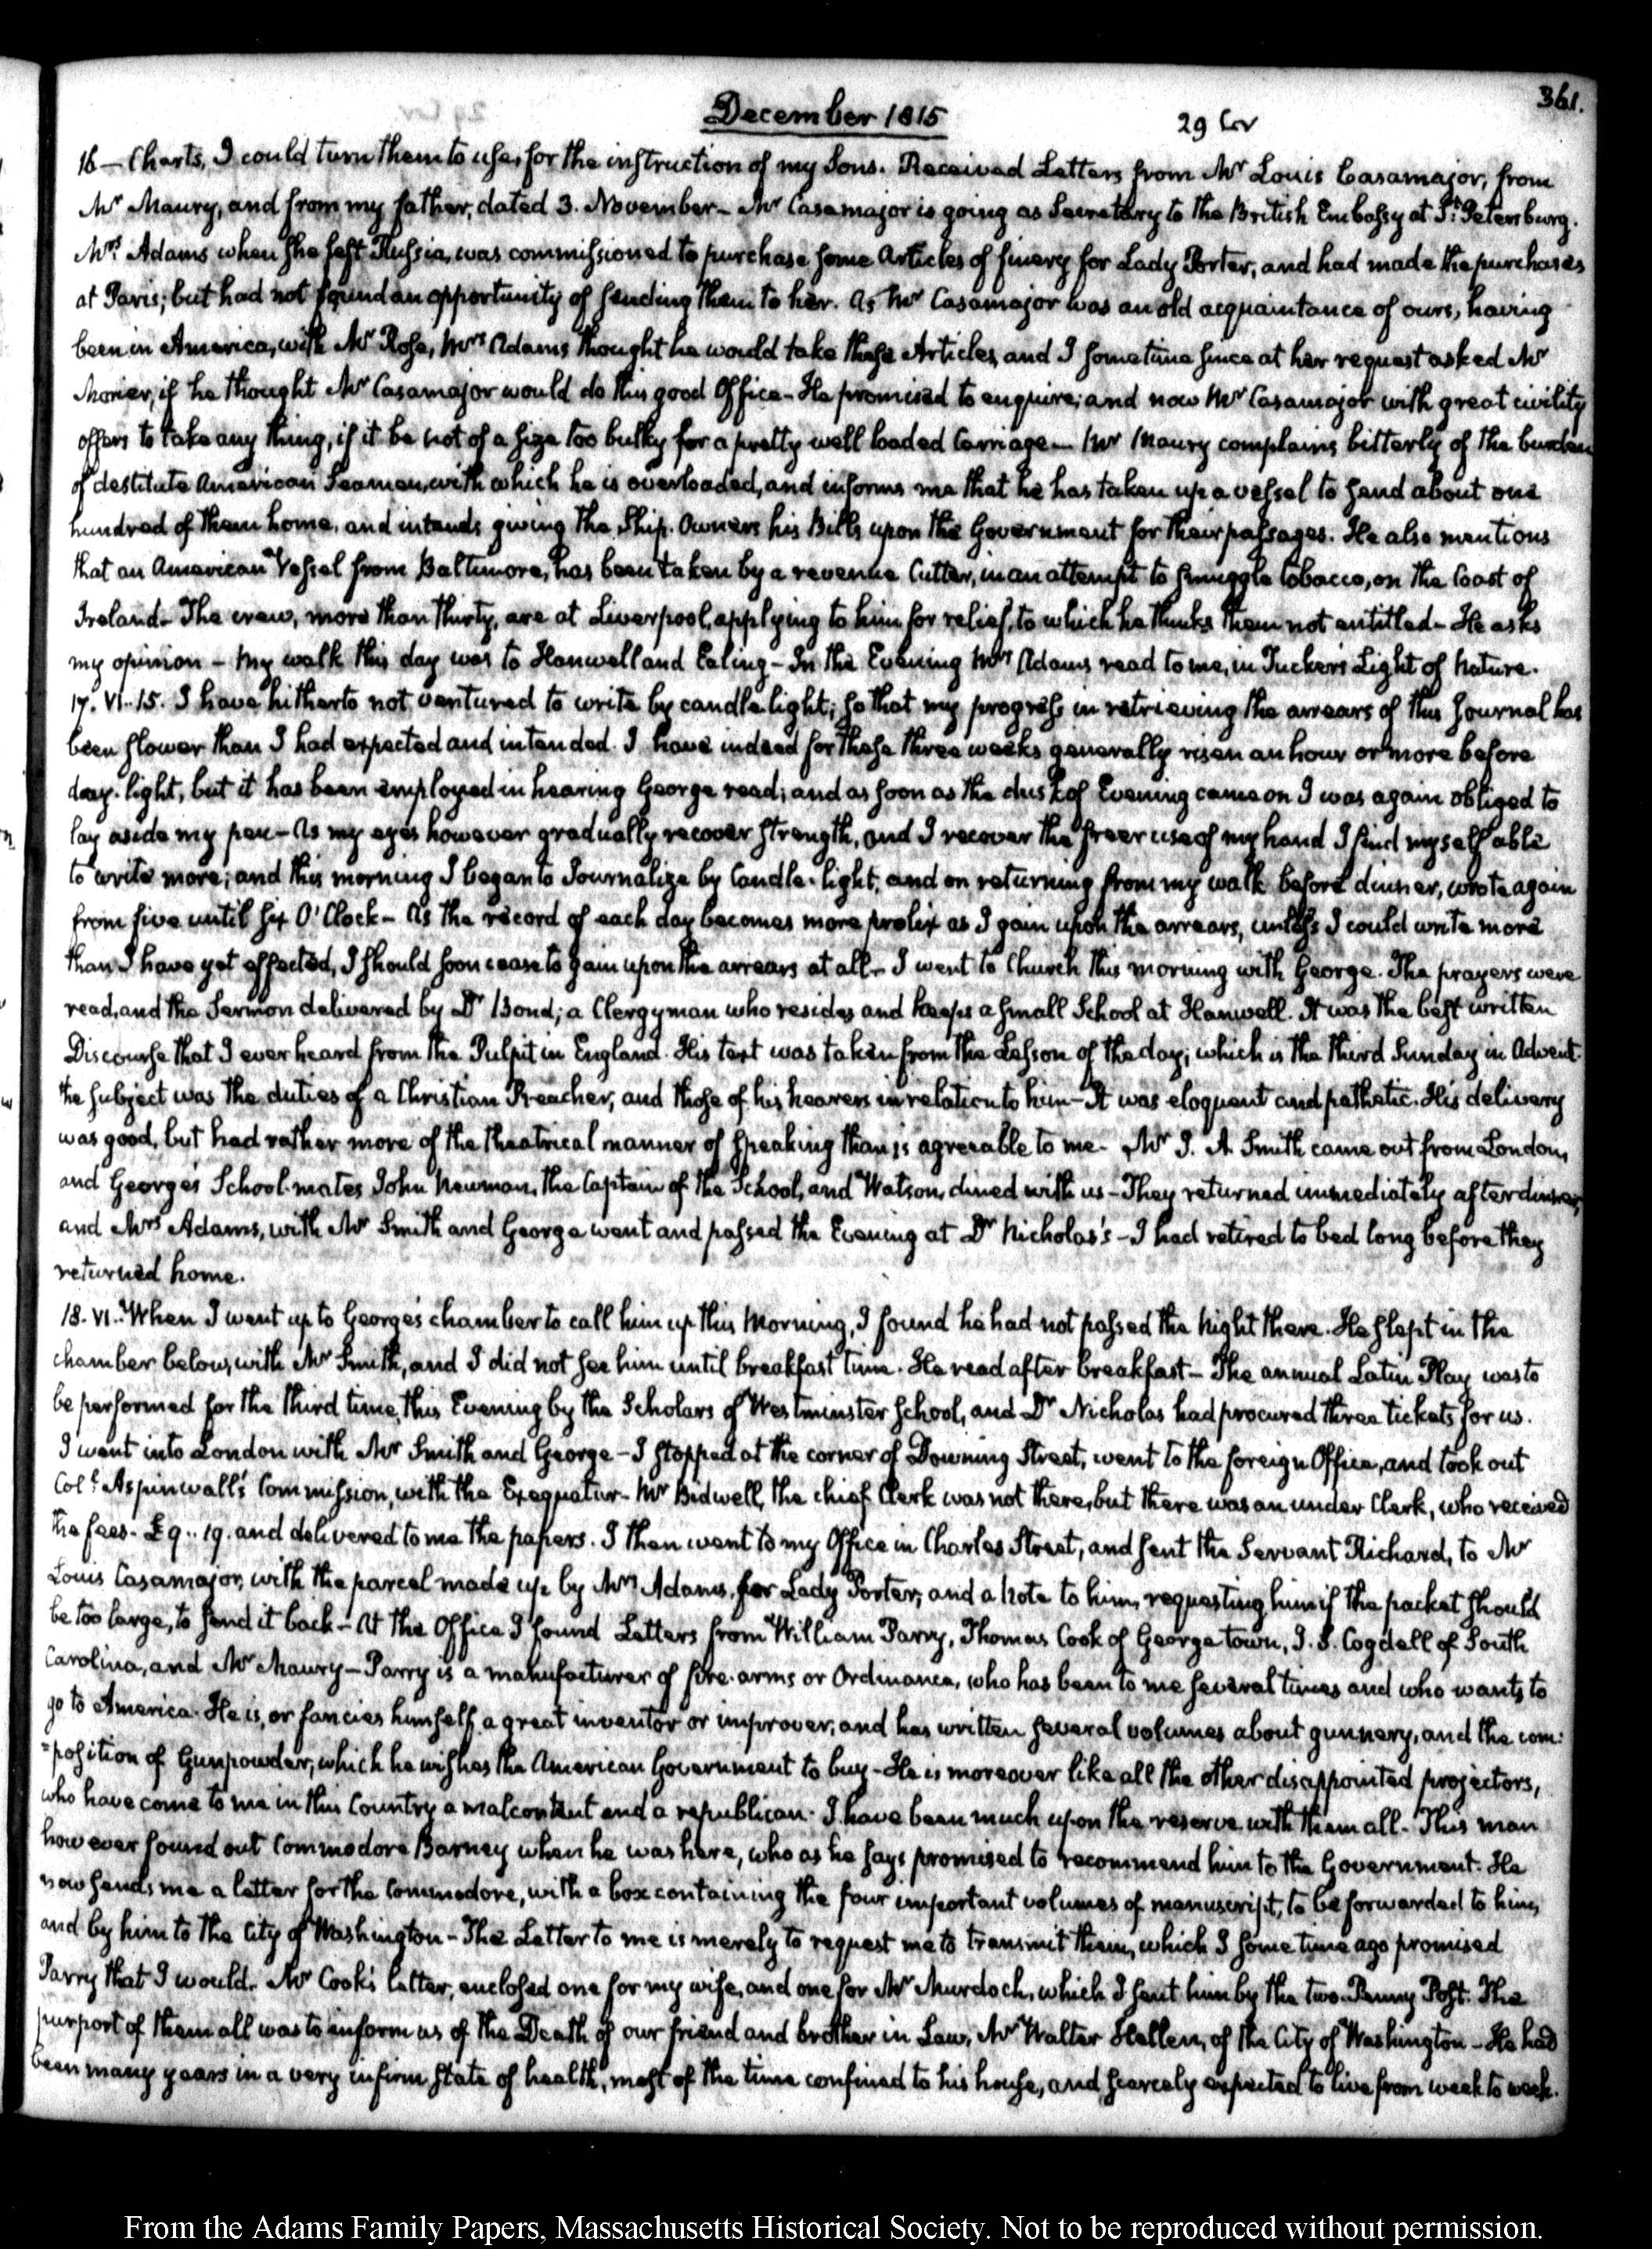 361.
December 1815
29 Cov
16 — Charts, I could turn them to use, for the instruction of my Sons. Received Letters from Mr Louis Casamajor, from
Mr Maury, and from my father, dated 3. November — Mr Casamajor is going as Secretary to the British Embassy at St. Petersburg.
Mrs Adams when she left Russia, was commissioned to purchase some Articles of finery for Lady Porter, and had made the purchases
at Paris; but had not found an opportunity of sending them to her. As Mr Casamajor was an old acquaintance of ours, having
been in America, with Mr Rose, Mrs Adams thought he would take these Articles, and I sometime since at her request asked Mr
Morier, if he thought Mr Casamajor would do this good Office — He promised to enquire; and now Mr Casamajor with great civility
offers to take any thing, if it be not of a size too bulky for a pretty well loaded Carriage — Mr Maury complains bitterly of the burden
of destitute American Seamen, with which he is overloaded, and informs me that he has taken up a vessel to send about one
hundred of them home, and intends giving the Ship-Owners his Bills upon the Government for their passages. He also mentions
that an American Vessel from Baltimore, has been taken by a revenue Cutter, in an attempt to smuggle tobacco, on the Coast of
Ireland — The crew, more than thirty, are at Liverpool, applying to him for relief, to which he thinks them not entitled — He asks
my opinion — My walk this day was to Hanwell and Ealing — In the Evening Mrs Adams read to me, in Tucker's Light of Nature.
17. VI..15. I have hitherto not ventured to write by candle light; so that my progress in retrieving the arrears of this Journal has
been slower than I had expected and intended. I have indeed for these three weeks generally risen an hour or more before
day-light, but it has been employed in hearing George read; and as soon as the dusk of Evening came on I was again obliged to
lay aside my pen — As my eyes however gradually recover strength, and I recover the freer use of my hand I find myself able
to write more; and this morning I began to Journalize by Candle-light; and on returning from my walk before dinner, wrote again
from five until six O'Clock — As the record of each day becomes more prolix as I gain upon the arrears, unless I could write more
than I have yet effected, I should soon cease to gain upon the arrears at all — I went to Church this morning with George. The prayers were
read, and the Sermon delivered by Dr Bond; a Clergyman who resides and keeps a small School at Hanwell. It was the best written
Discourse that I ever heard from the Pulpit in England. His text was taken from the Lesson of the day; which is the third Sunday in Advent.
the subject was the duties of a Christian Preacher, and those of his hearers in relation to him — It was eloquent and pathetic. His delivery
was good, but had rather more of the theatrical manner of speaking than is agreeable to me — Mr J. A. Smith came out from London,
and George's School-mates John Newman, the Captain of the School, and Watson, dined with us — They returned immediately after dinner,
and Mrs Adams, with Mr Smith and George went and passed the Evening at Dr Nicholas's — I had retired to bed long before they
returned home.
18. VI.. When I went up to George's chamber to call him up this Morning, I found he had not passed the Night there. He slept in the
chamber below, with Mr Smith, and I did not see him until breakfast time. He read after breakfast — The annual Latin Play was to
be performed for the third time, this Evening by the Scholars of Westminster School, and Dr Nicholas had procured three tickets for us.
I went into London with Mr Smith and George — I stopped at the corner of Downing Street, went to the foreign Office, and took out
Coll. Aspinwall's Commission, with the Exequatur — Mr Bidwell, the chief Clerk was not there, but there was an under Clerk, who received
the fees — £9..19. and delivered to me the papers. I then went to my Office in Charles Street, and sent the Servant Richard, to Mr
Louis Casamajor, with the parcel made up by Mrs Adams, for Lady Porter, and a Note to him, requesting him if the packet should
be too large, to send it back — At the Office I found Letters from William Parry, Thomas Cook of George town, J. S. Cogdell of South
Carolina, and Mr Maury — Parry is a manufacturer of fire-arms or Ordinance, who has been to me several times and who wants to
go to America. He is, or fancies himself a great inventor or improver, and has written several volumes about gunnery, and the com:
=position of Gunpowder, which he wishes the American Government to buy — He is moreover like all the other disappointed projectors,
who have come to me in this Country a malcontent and a republican. I have been much upon the reserve with them all — This man
however found out Commodore Barney when he was here, who as he says promised to recommend him to the Government. He
now sends me a letter for the Commodore, with a box containing the four important volumes of manuscript, to be forwarded to him,
and by him to the City of Washington — The Letter to me is merely to request me to transmit them, which I some time ago promised
Parry that I would. Mr Cook's letter, enclosed one for my wife, and one for Mr Murdoch, which I sent him by the two-Penny Post. The
purport of them all was to inform us of the Death of our friend and brother in Law, Mr Walter Hellen, of the City of Washington — He had
been many years in a very infirm state of health, most of the time confined to his house, and scarcely expected to live from week to week.
From the Adams Family Papers, Massachusetts Historical Society. Not to be reproduced without permission.